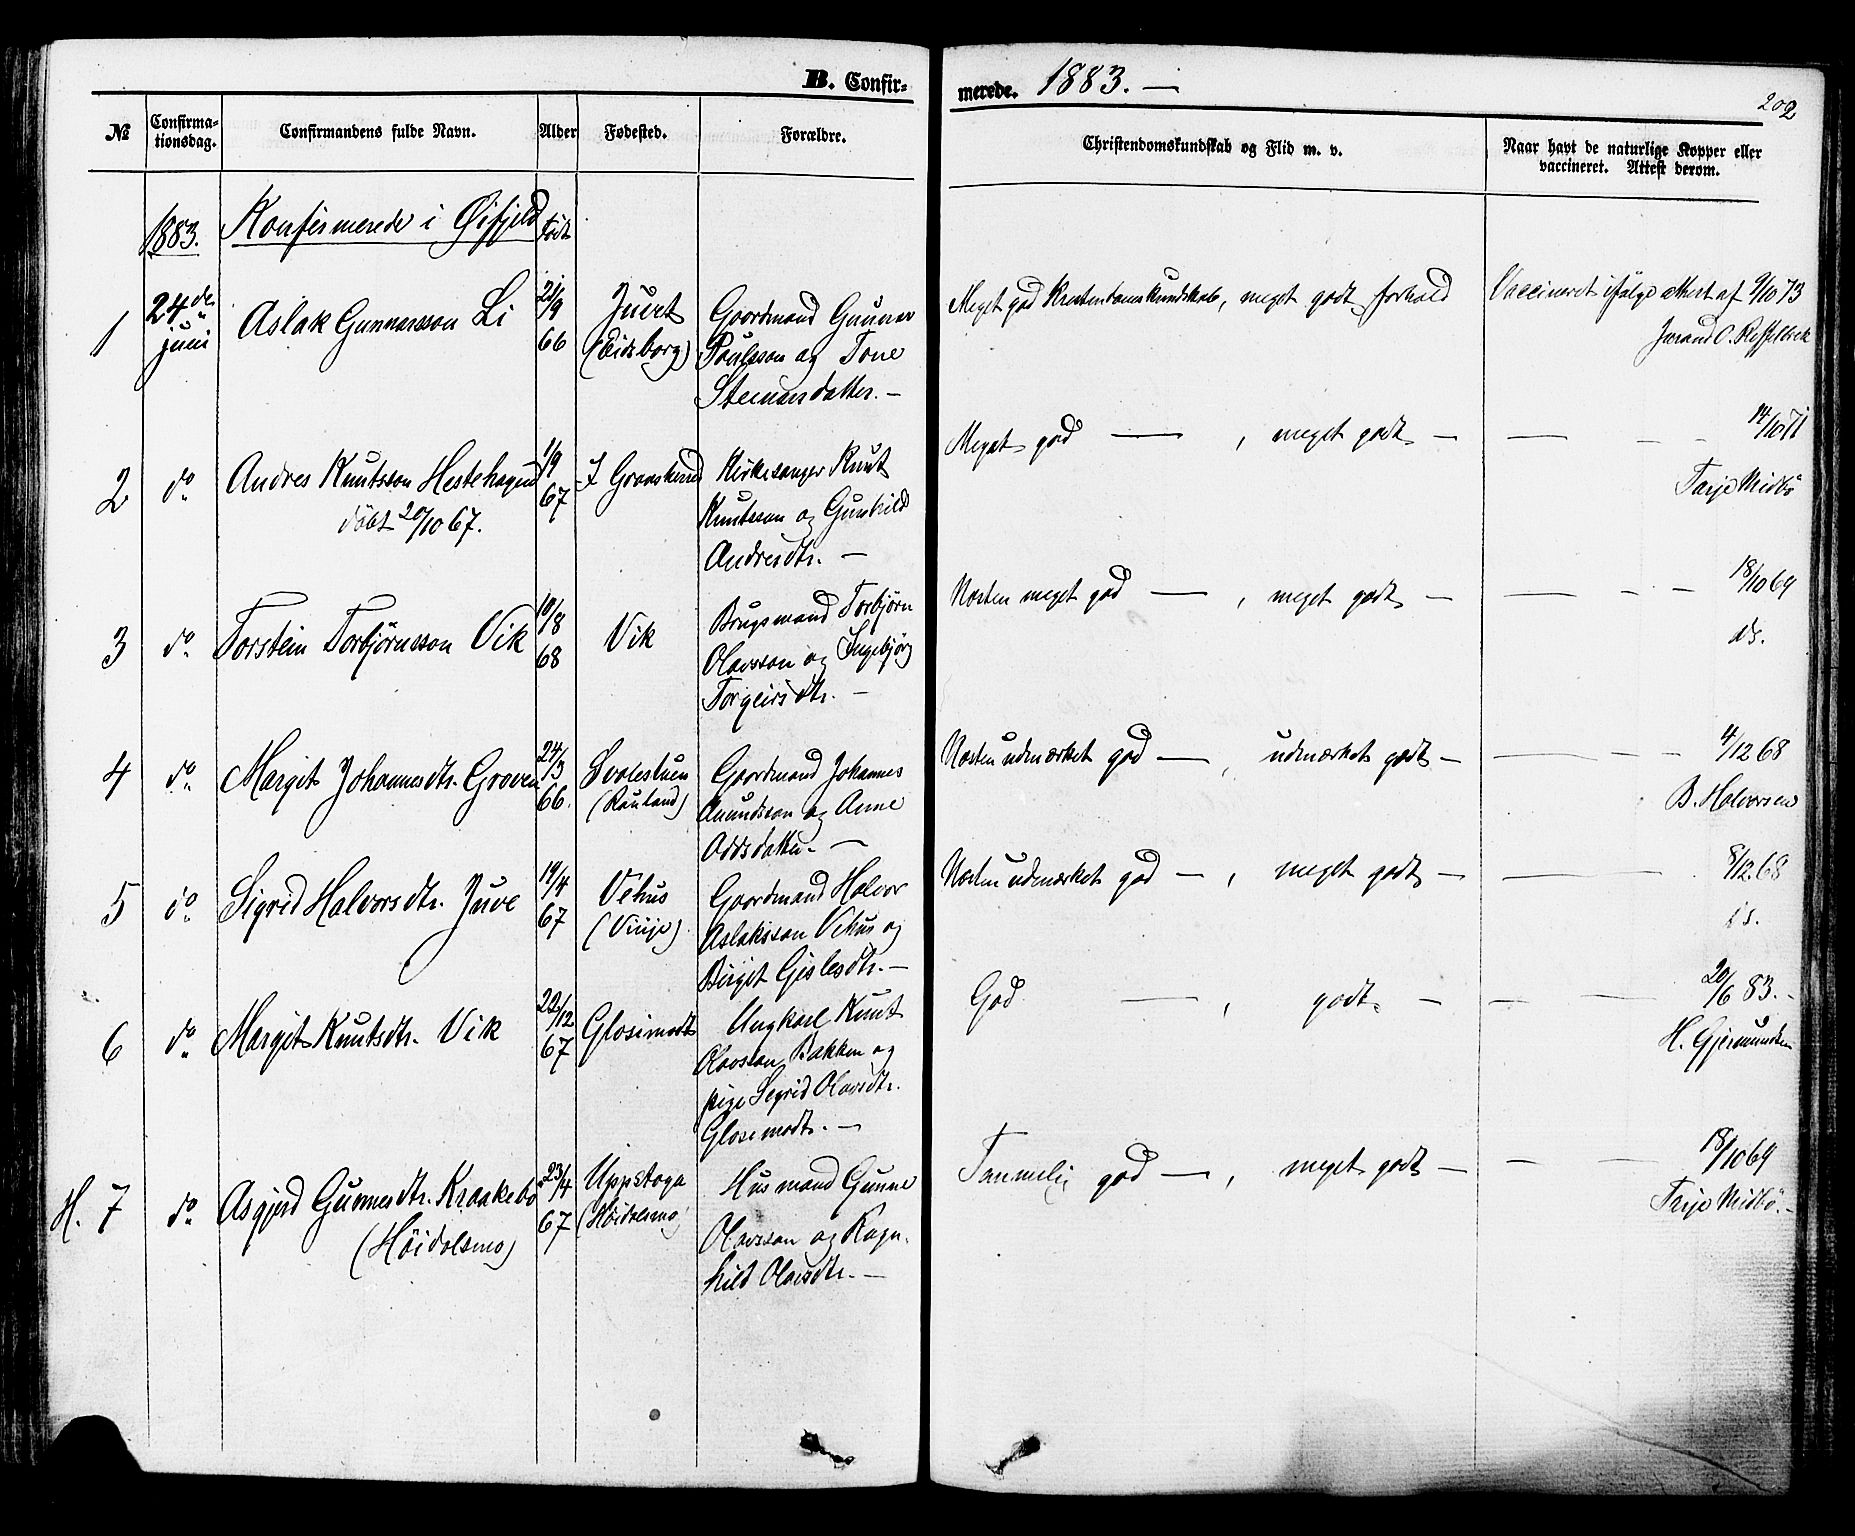 B. Confir-
merede. 1883. —
202
№
Confirma-
tionsdag.
Confirmandens fulde Navn.
Alder
Fødested.
Forældre.
Christendomskundskab og Flid m. v.
Naar havt de naturlige Kopper eller
vaccineret. Attest derom.
1883. Konfirmerede i Øifjeld født
1 24de juni Aslak Gunnarsson Li 21/9 66 Juvet (Eidsborg)
Gaardmand Gunnar
Paulsson og Tone
Steinarsdatter. —
Meget god Kristendomskundskab, meget godt forhold
Vaccineret ifølge attest af 9/10 73
2 do Andres Knutsson Hestehagen 1/9 67
døbt 20/10 67.
Kirkesanger Knut
Knutsson og Gunhild
Andresdtr. —
Meget god — , meget godt — — — — 14/10 71
Tarje Midbö
3 do Torstein Torbjörnsson Vik 10/8 68 Vik
Brugsmand Torbjörn
Olavsson og Ingebjörg
Torgeirsdtr. —
Næsten meget god — , meget godt — — — — 18/10 69
ds.
4 do Margit Johannesdtr. Groven 24/3 66. Svalestuen (Rauland)
Gaardmand Johannes
Anundsson og Anne
Oddsdatter. —
Næsten udmærket god — , udmærket godt — — — — 4/12 68
B. Halvorsen
5 do Sigrid Halvorsdtr. Juve 14/4 67 Vehus (Vinje).
Gaardmand Halvor
Aslaksson Vehus og
Birgit Gislesdtr. —
Næsten udmærket god — , meget godt — — — 8/12 68
ds.
6 do Margit Knutsdtr. Vik 22/12 67 Glosimodt
Ungkarl Knut
Olavsson Bakken og
pige Sigrid Olavsdtr.
Glosimodt. —
God — , godt — — — 20/6 83. —
H. Gjermundsen
H. 7 do Asgjerd Gunnesdtr. Kraakebö 23/4 67 Uppstoga (Höidalsmo)
(Höidalsmo)
Husmand Gunne
Olavsson og Ragn-
hild Olavsdtr. —
Temmelig god — , meget godt — — — 18/10 69
Tarje Midbö. —